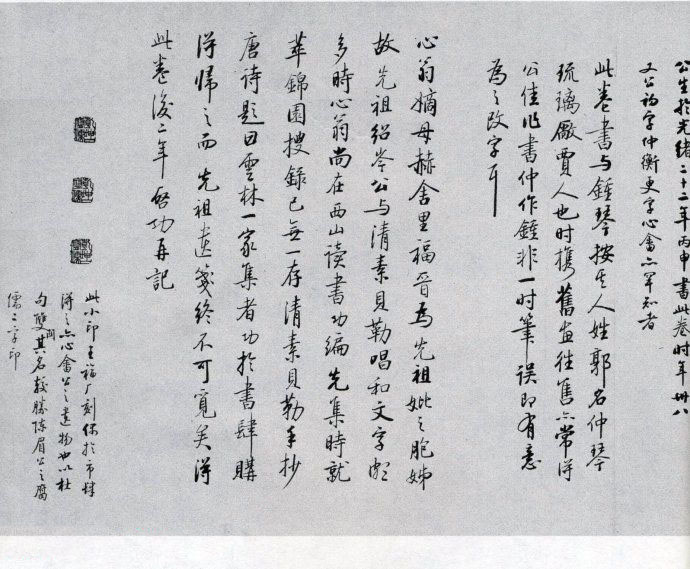 公生於光緒二十二年丙申書此卷时年卅八
又公初字仲衡更字心畬亦罕知者
此卷書与鍾琴按其人姓郭名仲琴
琉璃厰賈人也时携舊画往售亦常得
公佳作書仲作鍾非一时筆误即有意
為之改字耳
心翁嫡母赫舍里福晋為先祖妣之胞姊
故先祖绍岑公与清素貝勒唱和文字頗
多时心翁尚在西山读書功编先集時就
萃錦園搜錄已無一存清素貝勒手抄
唐诗題曰雲林一家集者功於書肆購
得歸之而先祖遺箋終不可覓矣得
此卷後二年 啓功再記
此小印王福厂刻保於市肆
得之亦心畬公之遺物也以杜
句雙關其名較勝陈眉公之腐
儒二字印